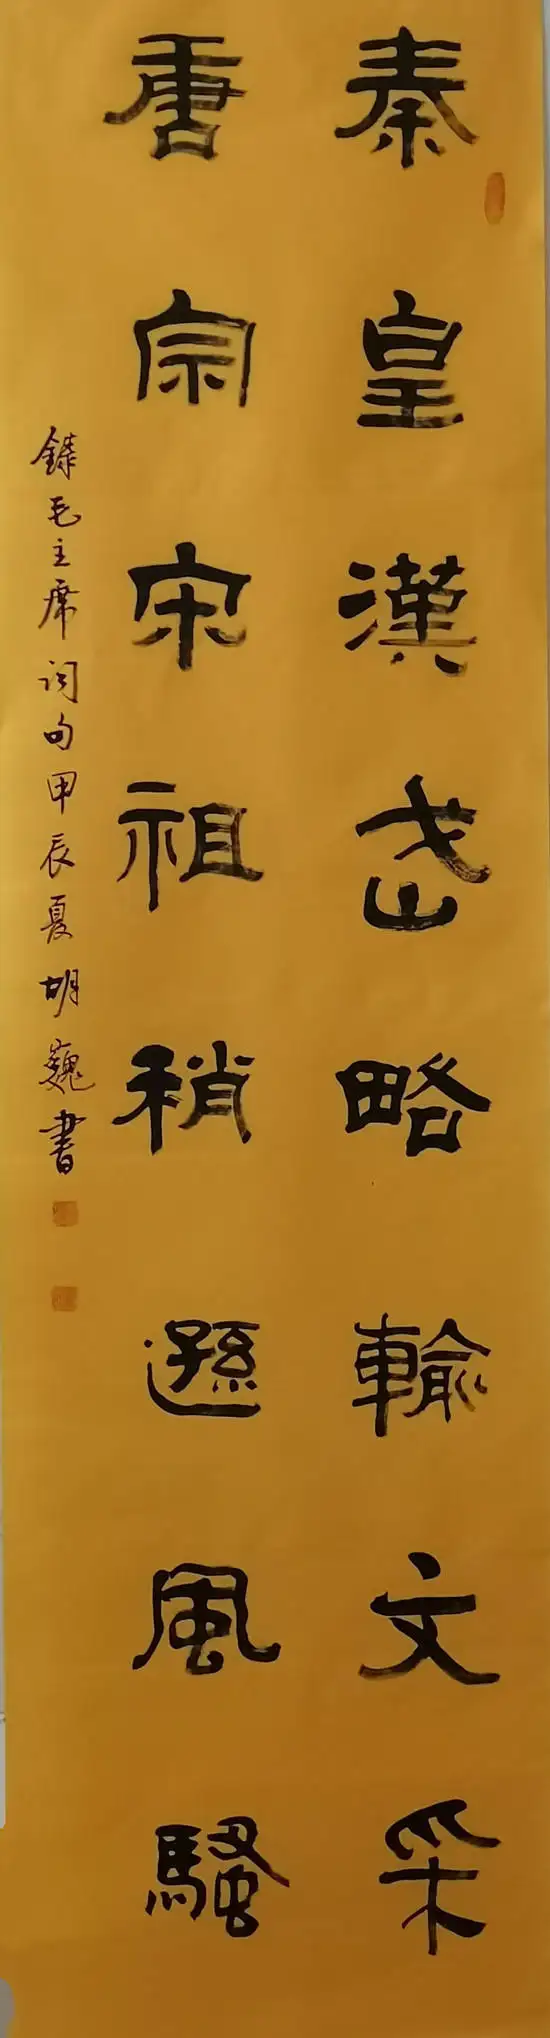 秦皇漢武略輸文采
唐宗宋祖稍遜風騷
錄毛主席词句甲辰夏胡巍書